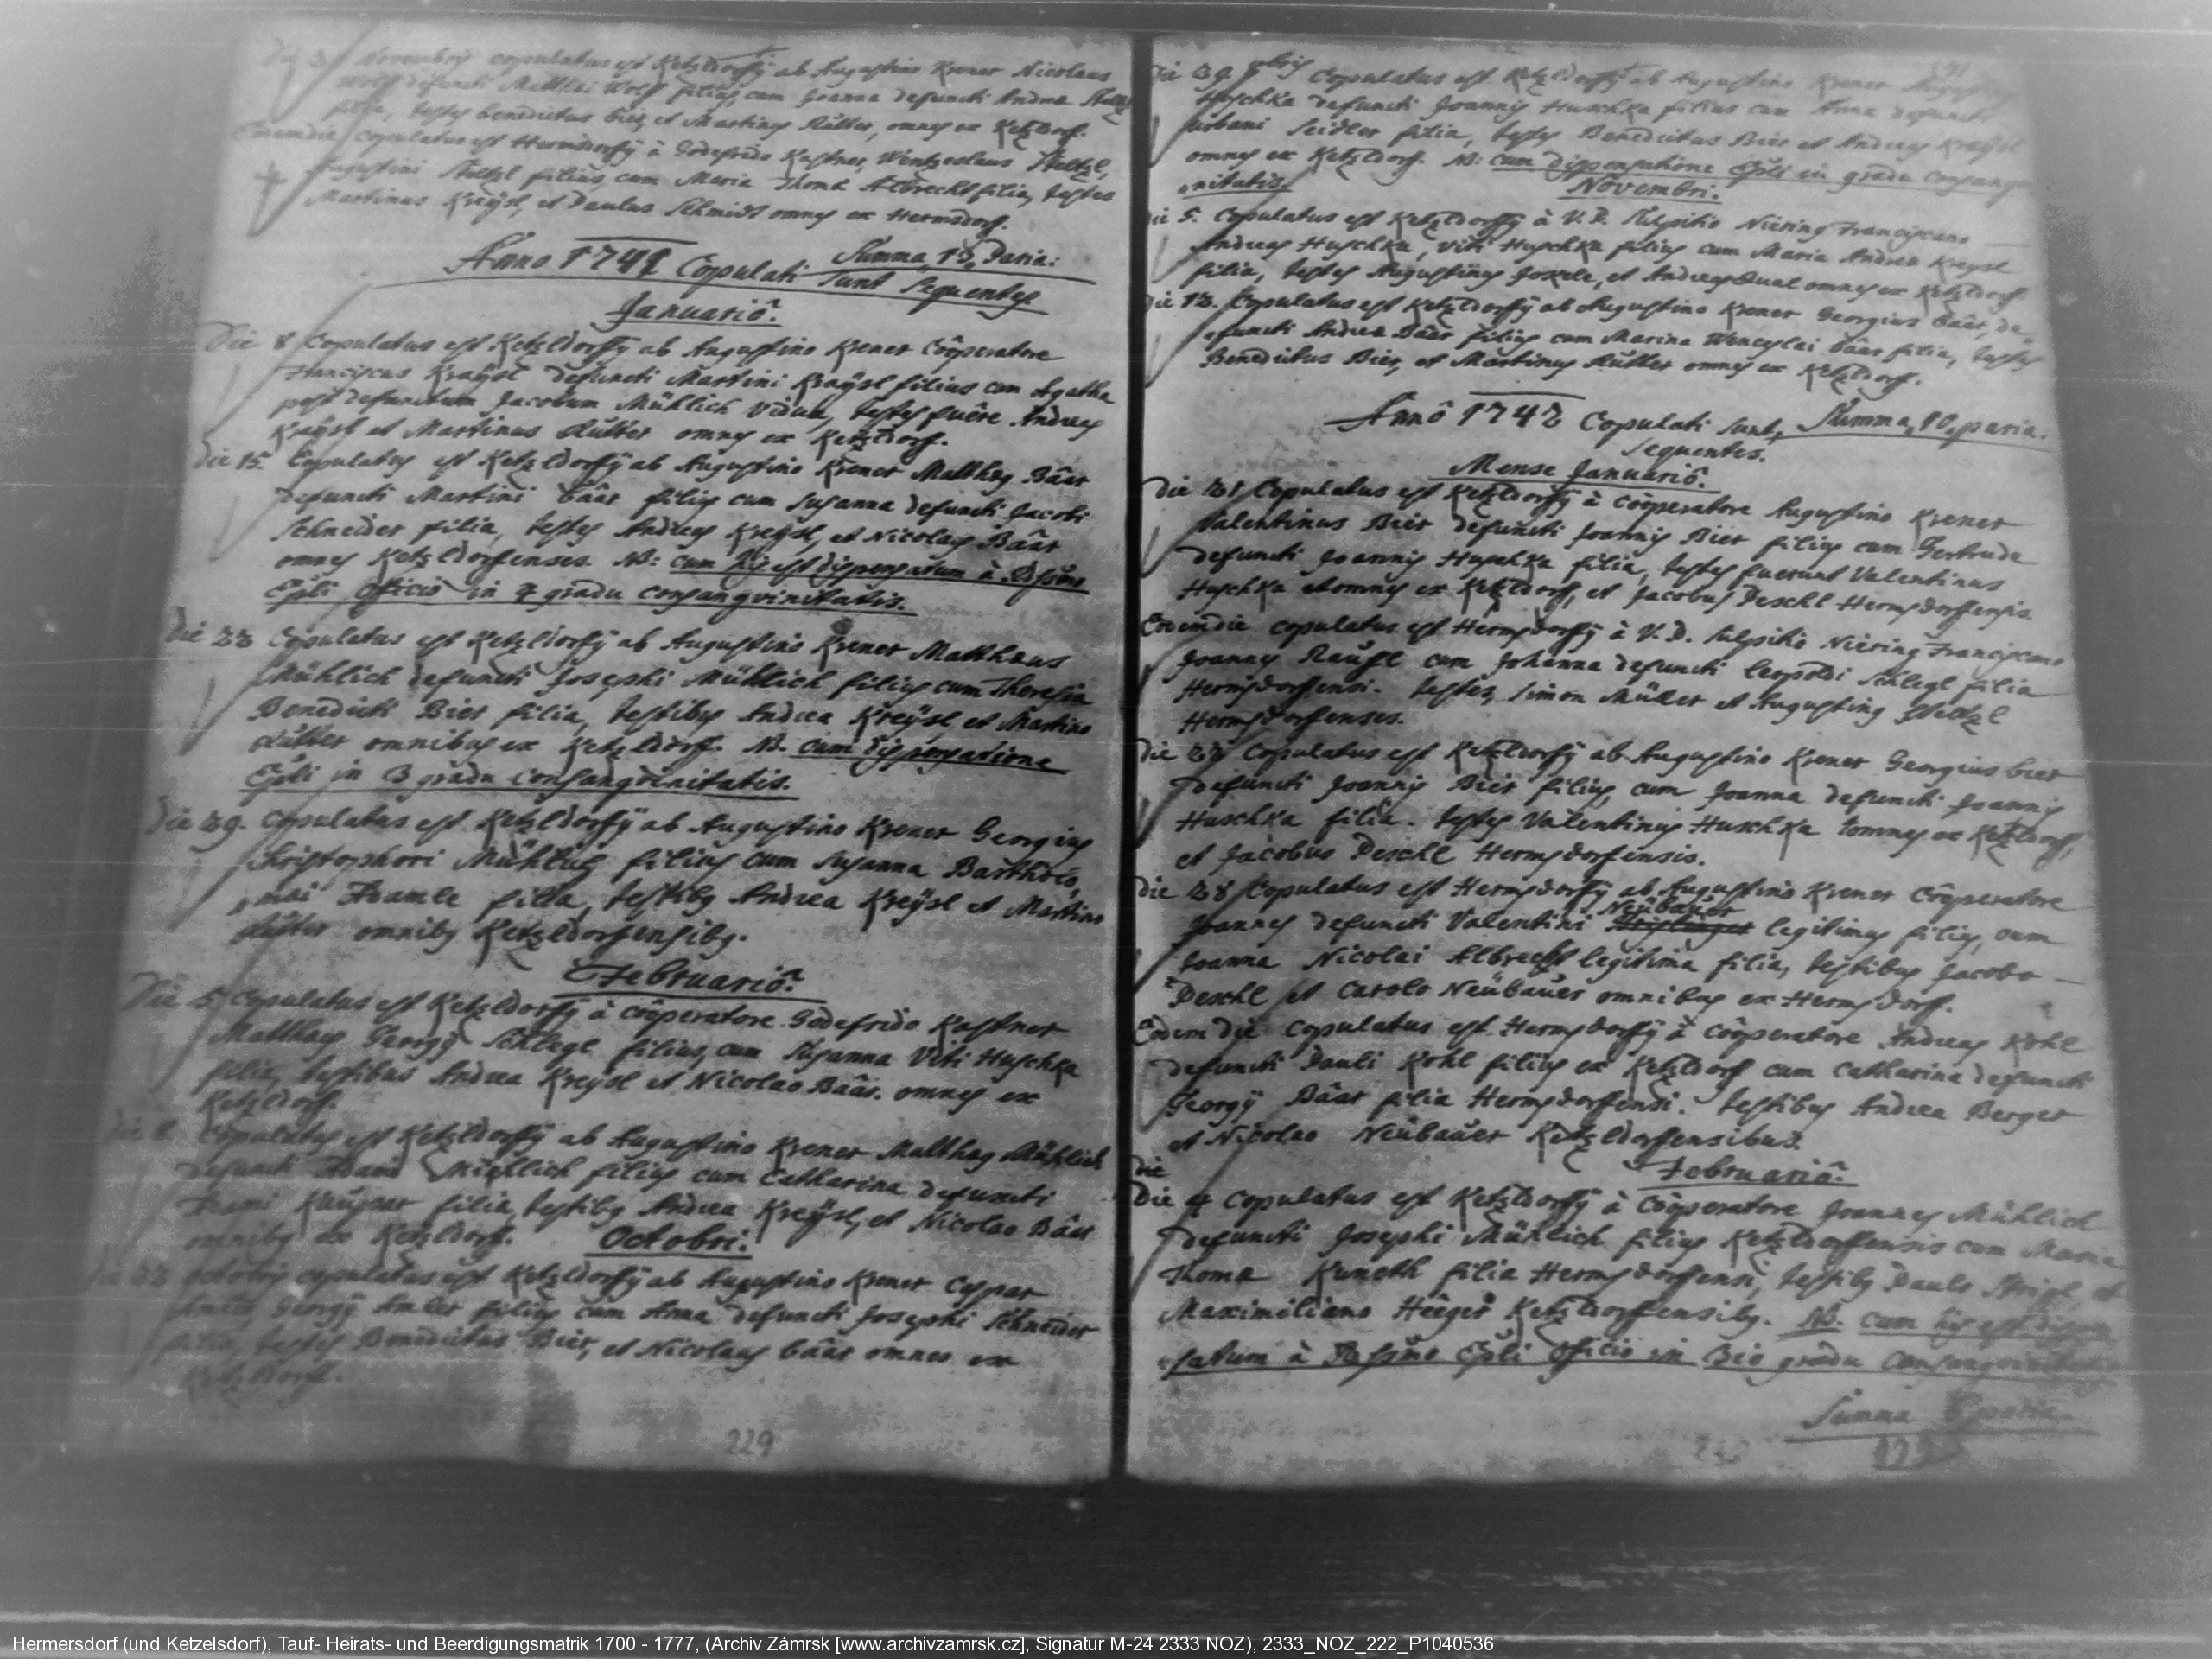 Die 3 Novembris copulatus est Ketzldorffÿ ab Augustino Krener Nicolaus
Wolf defuncti Matthæi Wolf filius, cum Joanna defuncti Andreæ
filia, testes benedictus bier, et Martinus Rütter, omnes ex Ketzldorf.
Eodem die copulatus est Hermsdorffÿ à Godefrido Kastner, Wentzeslaus Stutzl,
Augustini Stutzl filius, cum Maria Thomæ Albrecht filia, testes
Martinus Kreÿsl, et Paulus Schmidt omnes ex Hermsdorf.
Summa, 12, Paria:
Anno 1741 Copulati sunt Sequentes
Januariô.
Die 8 Copulatus est Ketzldorffÿ ab Augustino Krener Côoperatore
Franciscus Kraÿsl defuncti Martini Kraÿsl filius cum Agatha
post defunctum Jacobum Mühlich vidua, testes fuêre Andreas
Kraÿsl et Martinus Rütter omnes ex Ketzldorf.
Die 15. Copulatus est Ketzldorffÿ ab Augustino Krener Mathæs Bâar
defuncti Martini bâar filius cum Susanna defuncti Jacobi
Schneider filia, testes Andreas Kreÿsl, et Nicolaus Bâar
omnes Ketzldorfenses. NB: cum his est dispensatum à Rssmo
Eppli officiô in 4 gradu consangvinitatis.
Die 22 Copulatus est Ketzldorffÿ ab Augustino Krener Matthæus
Mühlich defuncti Josephi Mühlich filius cum Theresia
Benedicti Bier filia, testibus Andrea Kreÿsl et Martino
Rütter omnibus ex Ketzldorf. NB. cum dispensatione
Eppli in 3 gradu consangvinitatis.
Die 29. Copulatus est Ketzldorffÿ ab Augustino Krener Georgius
Christophori Mühlich filius cum Susanna Bartholo,
,mæi filia, testibus Andrea Kreÿsl et Martino
Rütter omnibus Ketzldorfensibus.
Februariô.
Die 5 Copulatus est Ketzldorffÿ à côoperatore Godefrido Kastner
Matthæus Georgÿ Schlegl filius, cum Susanna Viti Huschka
filia, testibus Andrea Kreÿsl et Nicolao Bâar. omnes ex
Ketzldorf.
Die Copulatus est Ketzldorffÿ ab Augustino Krener Matthæs Mühlich
defuncti Adami Mühlich filius cum Catharina defuncti
filia, testibus Andrea Kreÿsl, et Nicolao Bâar
omnibus ex Ketzldorf. Octobri.
Die 22 octobris copulatus est Ketzldorffÿ ab Augustino Krener Caspar
Amler, Georgÿ Amler filius cum Anna defuncti Josephi Schneider
filia, testes Benedictus Bier, et Nicolaus bâar omnes ex
Ketzldorf.
229
Die 29. 8bris Copulatus est Ketzldorffÿ ab Augustino Krener
Huschka defuncti Joannis Huschka filius cum Anna defuncti
Urbani Seidler filia, testes Benedictus Bier et Andreas Kraÿsl
omnes ex Ketzldorf. NB: cum dispensatione Eppli in gradu consangv
,initatis.
Novembri.
Die 5. Copulatus est Ketzldorffÿ à V. P. Sulpitio Niering Franciscano
Andreas Huschka, Viti Huschka filius cum Maria Andreæ Kreysl
filia, testes Augustinus Jokele, et Andreas Qual omnes ex Ketzldorf.
Die 12. Copulatus est Ketzldorffÿ ab Augustino Krener Georgius bâar, de,
,functi Andreæ Bâar filius cum Marina Wenceslai bâar filia, testes
Benedictus Bier, et Martinus Rütter omnes ex Ketzldorf.
Summa, 10, paria.
Annô 1742 Copulati sunt,
sequentes.
Mense Januariô.
Die 21 Copulatus est Ketzldorffÿ à côoperatore Augustino Krener
Valentinus Bier defuncti Joannis Bier filius cum Gertrude
defuncti Joannis Huschka filia, testes fuerunt Valentinus
Huschka omnes ex Ketzldorf, et Jacobus Peschl Hermsdorffensis.
Eodem die copulatus est Hermsdorffÿ à V. P. Sulpitio Niering Franciscano
Joannes cum Johanna defuncti leopoldi Schlegl filia
Hermsdorffensi. testes, Simon Müller et Augustinus
Hermsdorffenses.
Die 22 Copulatus est Ketzldorffÿ ab Augustino Krener Georgius bier
defuncti Joannis Bier filius, cum Joanna defuncti Joannis
Huschka filia. testes Valentinus Huschka omnes ex Ketzldorf,
et Jacobus Peschl Hermsdorfensis.
Die 28 Copulatus est Hermsdorffÿ ab Augustino Krener Côoperatore
Joannes defuncti Valentini Neübauer legitimus filius, cum
Joanna Nicolai Albrecht legitima filia, testibus Jacobo
Peschl et Carolo Neübauer omnibus ex Hermsdorf.
Eodem die copulatus est Hermsdorffÿ à côoperatore Andreas Kohl
defuncti Pauli Kohl filius ex Ketzldorf cum Catharina defuncti
Georgÿ Bâar filia Hermsdorffensi. testibus Andrea Berger
et Nicolao Neübauer Ketzldorffensibus.
die Februariô.
Die 4 Copulatus est Ketzldorffÿ à Côoperatore Joannes Mühlich
defuncti Josephi Mühlich filius Ketzldorffensis cum Maria
Thomæ Kuneth filia Hermsdorffensi, testibus Paulo et
Maximiliano Heeger Ketzldorffensibus. NB. cum his est dispen
,satum à Rssmo Eppli officiô in 3tio gradu consangvinitatis
Summa
Hermersdorf (und Ketzelsdorf), Tauf- Heirats- und Beerdigungsmatrik 1700 - 1777, (Archiv Zámrsk [www.archivzamrsk.cz], Signatur M-24 2333 NOZ), 2333_NOZ_222_P1040536